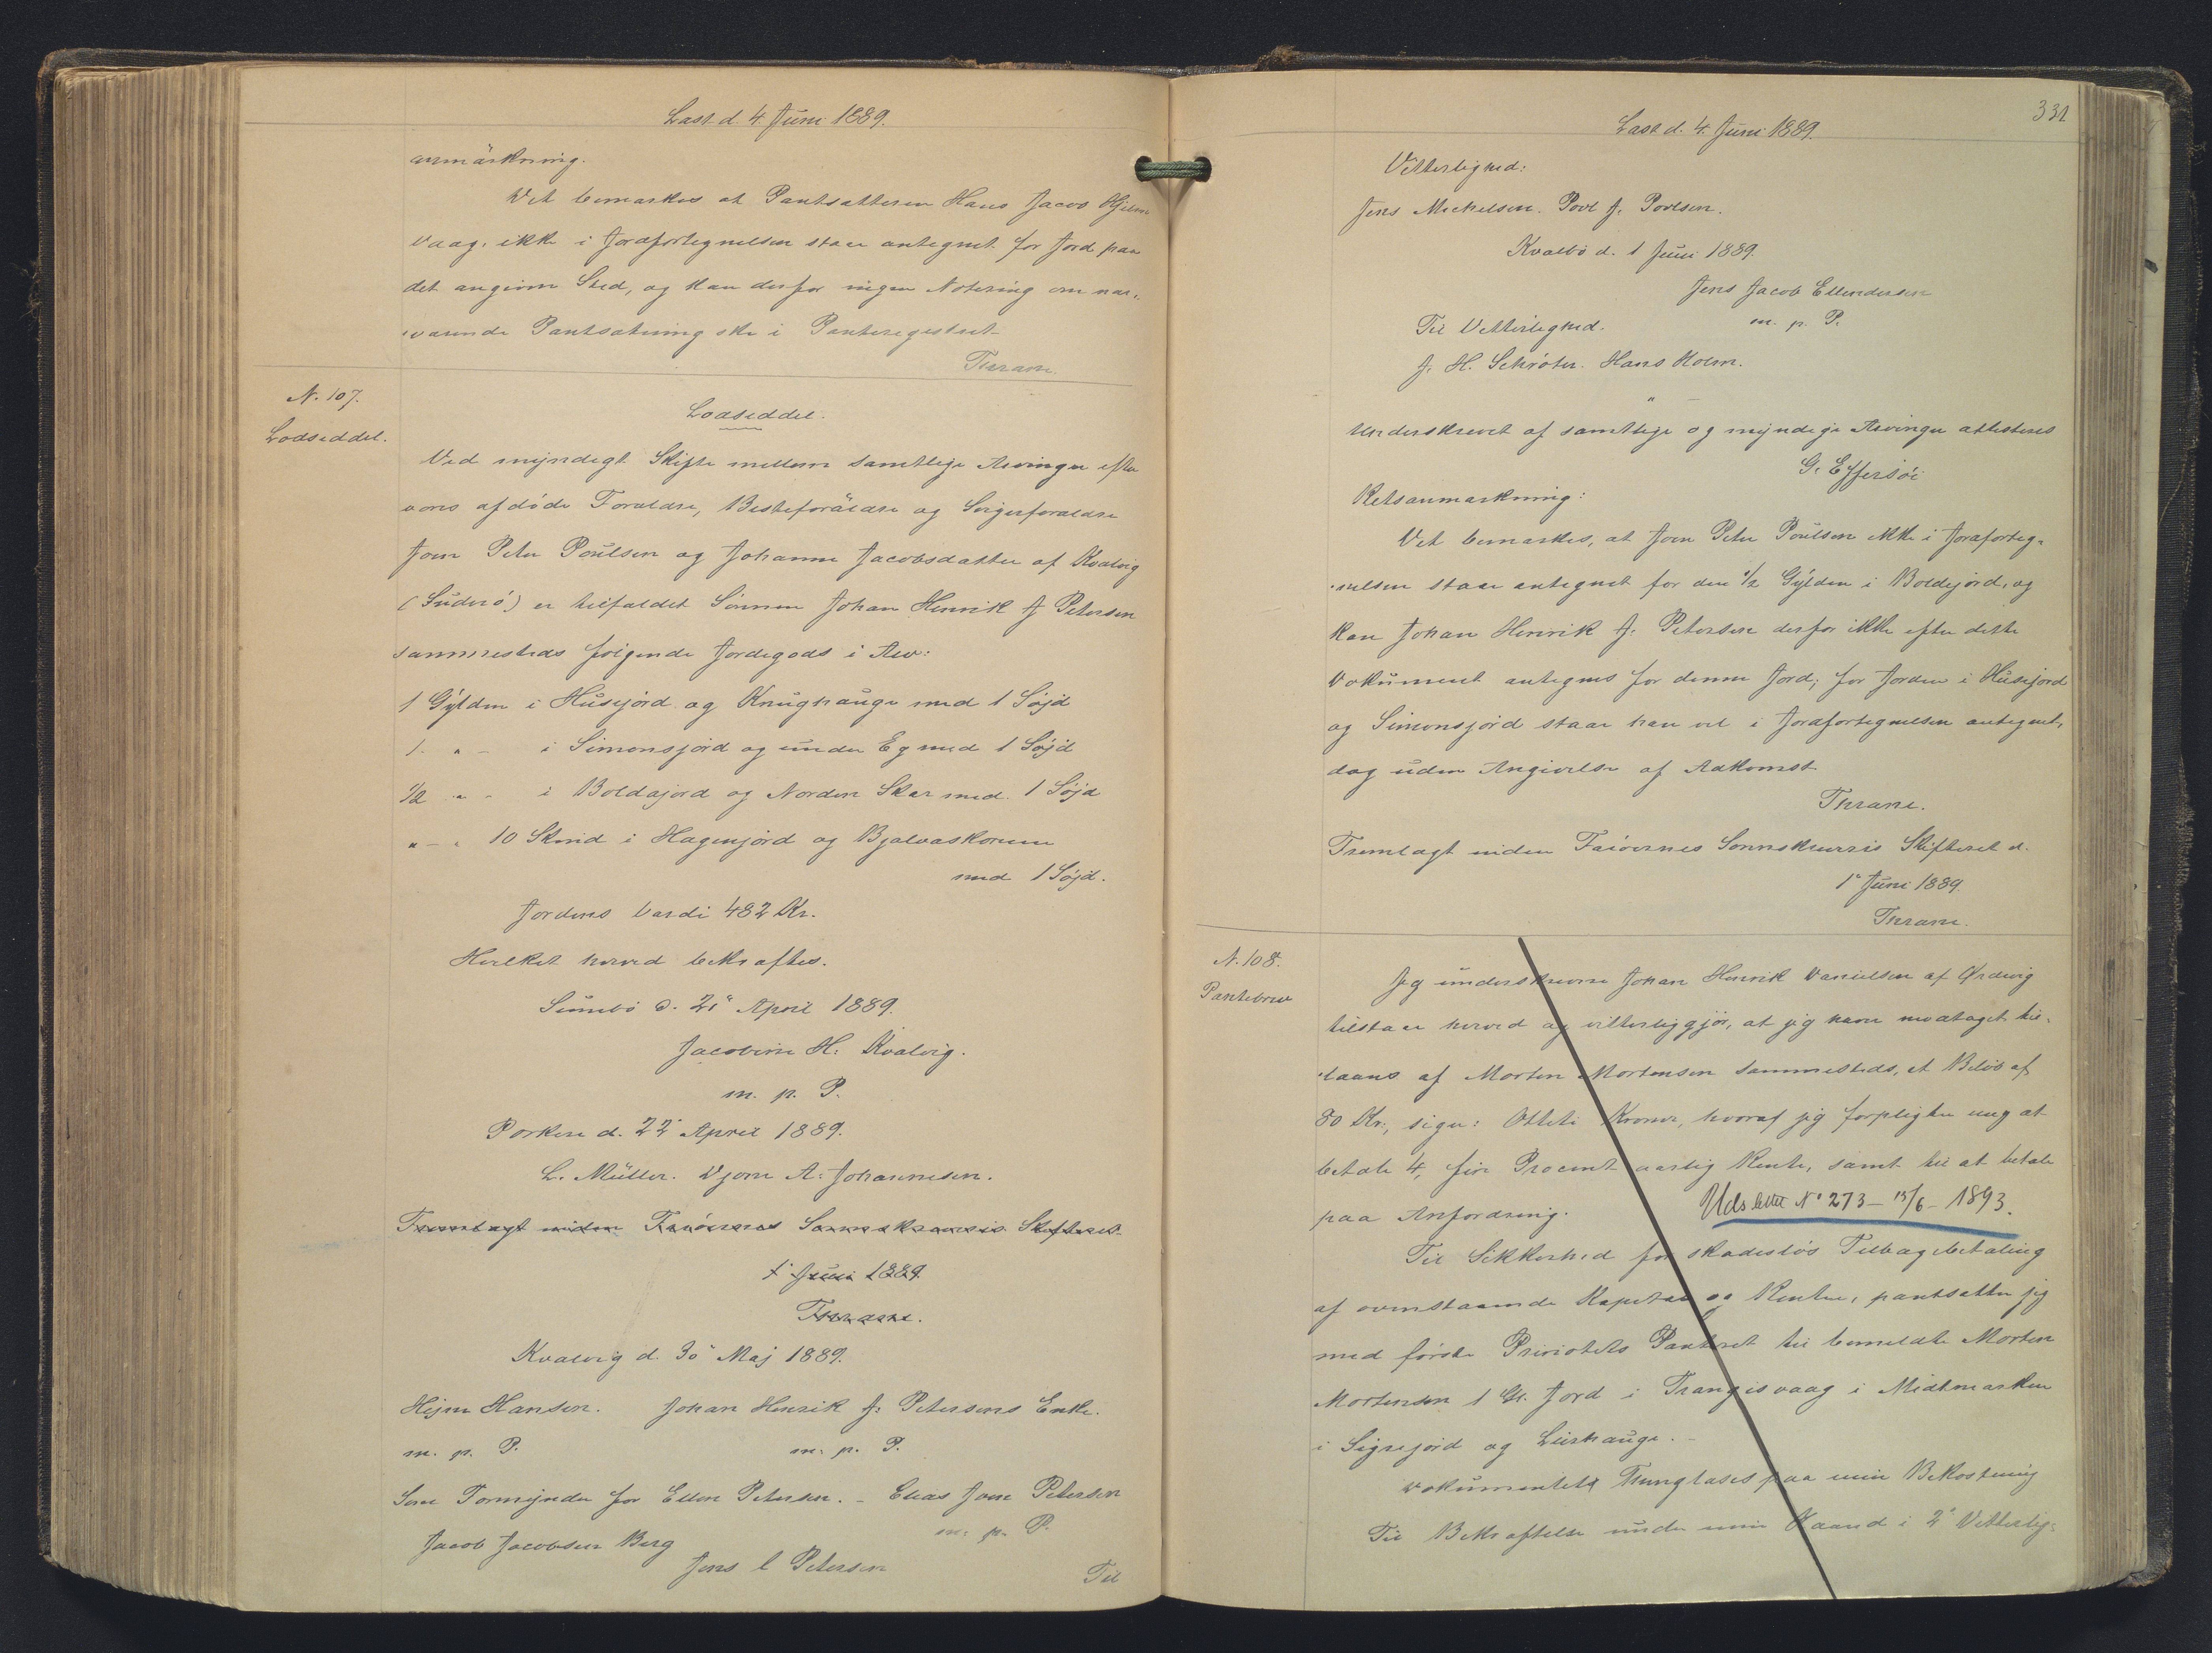 Læst d. 4. Juni 1889.
anmärkning.
Det bemærkes at Pantsætteren Hans Jacob Hjelm
vaag, ikke i Jordfortegnelsen staar antegnet for Jord paa
det angivne Sted, og kan derfor ingen Notering om nær-
værende Pantsætning ske i Panteregistret
Thrane.
N. 107.
Lodseddel.
Lodseddel.
Ved myndigt Skifte mellem samtlige Arvinger efter
vores afdöde Forældre, Besteforäldre og Svigerforældre
Joen Peter Poulsen og Johanne Jacobsdatter af Kvalvig
(Suderö) er tilfaldet Sönnen Johan Henrik J. Petersen
sammesteds fölgende Jordegods i Arv:
1 Gylden i Husejord og Knughauge med 1 Söjd
1. " - i Simonsjord og under Eg med 1 Söjd
1/2 " - i Boldajord og Norden Skar med 1 Söjd
" - " 10 Skind i Hagenjord og Bjalvaskorum
med 1 Söjd.
Jordens Værdi 482 Kr.
Hvilket herved bekræftes.
Sumbö d. 21' April 1889.
Jacobine H. Kvalvig.
m. p. P.
Porkere d. 22' April 1889.
L. Müller. Djone A. Johannesen.
Fremlagt inden Færöernes Sorenskrivers Skifteret
1' Juni 1889.
Thrane.
Kvalvig d. 30' Maj 1889.
Hejne Hansen. Johan Henrik J. Petersens Enke.
m. p. P. m. p. P.
Som Formynder for Ellen Petersen. - Elias Joen Petersen
m. p. P.
Jacob Jacobsen Berg
Jens C Petersen
Til
331
Læst d. 4. Juni 1889.
Vitterlighed:
Jens Michelsen. Povl J. Povlsen.
Kvalbö d. 1 Juni 1889.
Jens Jacob Ellendersen
m. p. P.
Til Vitterlighed.
J. H. Schröter. Hans Holm.
" -
Underskrevet af samtlige og myndige Arvinger attesteres
G. Effersöe
Retsanmærkning:
Det bemærkes, at Joen Peter Poulsen ikke i Jordforteg-
nelsen staar antegnet for den 1/2 Gylden i Boldejord, og
kan Johan Henrik J. Petersen derfor ikke efter dette
Dokument antegnes for denne Jord; for Jorden i Husejord
og Simonsjord staar han vel i Jordfortegnelsen antegnet,
dog uden Angivelse af Adkomst
Thrane.
Fremlagt inden Færöernes Sorenskrivers Skifteret d.
1' Juni 1889.
Thrane.
N. 108.
Pantebrev
Jeg underskrevne Johan Henrik Danielsen af Ördevig
tilstaar herved og vitterliggjör, at jeg have modtaget til-
laans af Morten Mortensen sammesteds, et Belöb af
80 Kr., siger: Otteti Kroner, hvoraf jeg forpligter mig at
betale 4, fire Procent aarlig Rente, samt til at betale
paa Anfordring.
Udslettet No 273 - 13/6 - 1893.
Til Sikkerhed for skadeslös Tilbagebetaling
af ovenstaaende Kapital og Renter, pantsætter jeg
med förste Prioritets Panteret til bemeldte Morten
Mortensen 1 Gl. Jord i Trangisvaag i Midtmarken
i Signejord og Leirhauge. -
Dokumentet Thinglæses paa min Bekostning
Til Bekræftelse under min Haand i 2' Vitterlig-